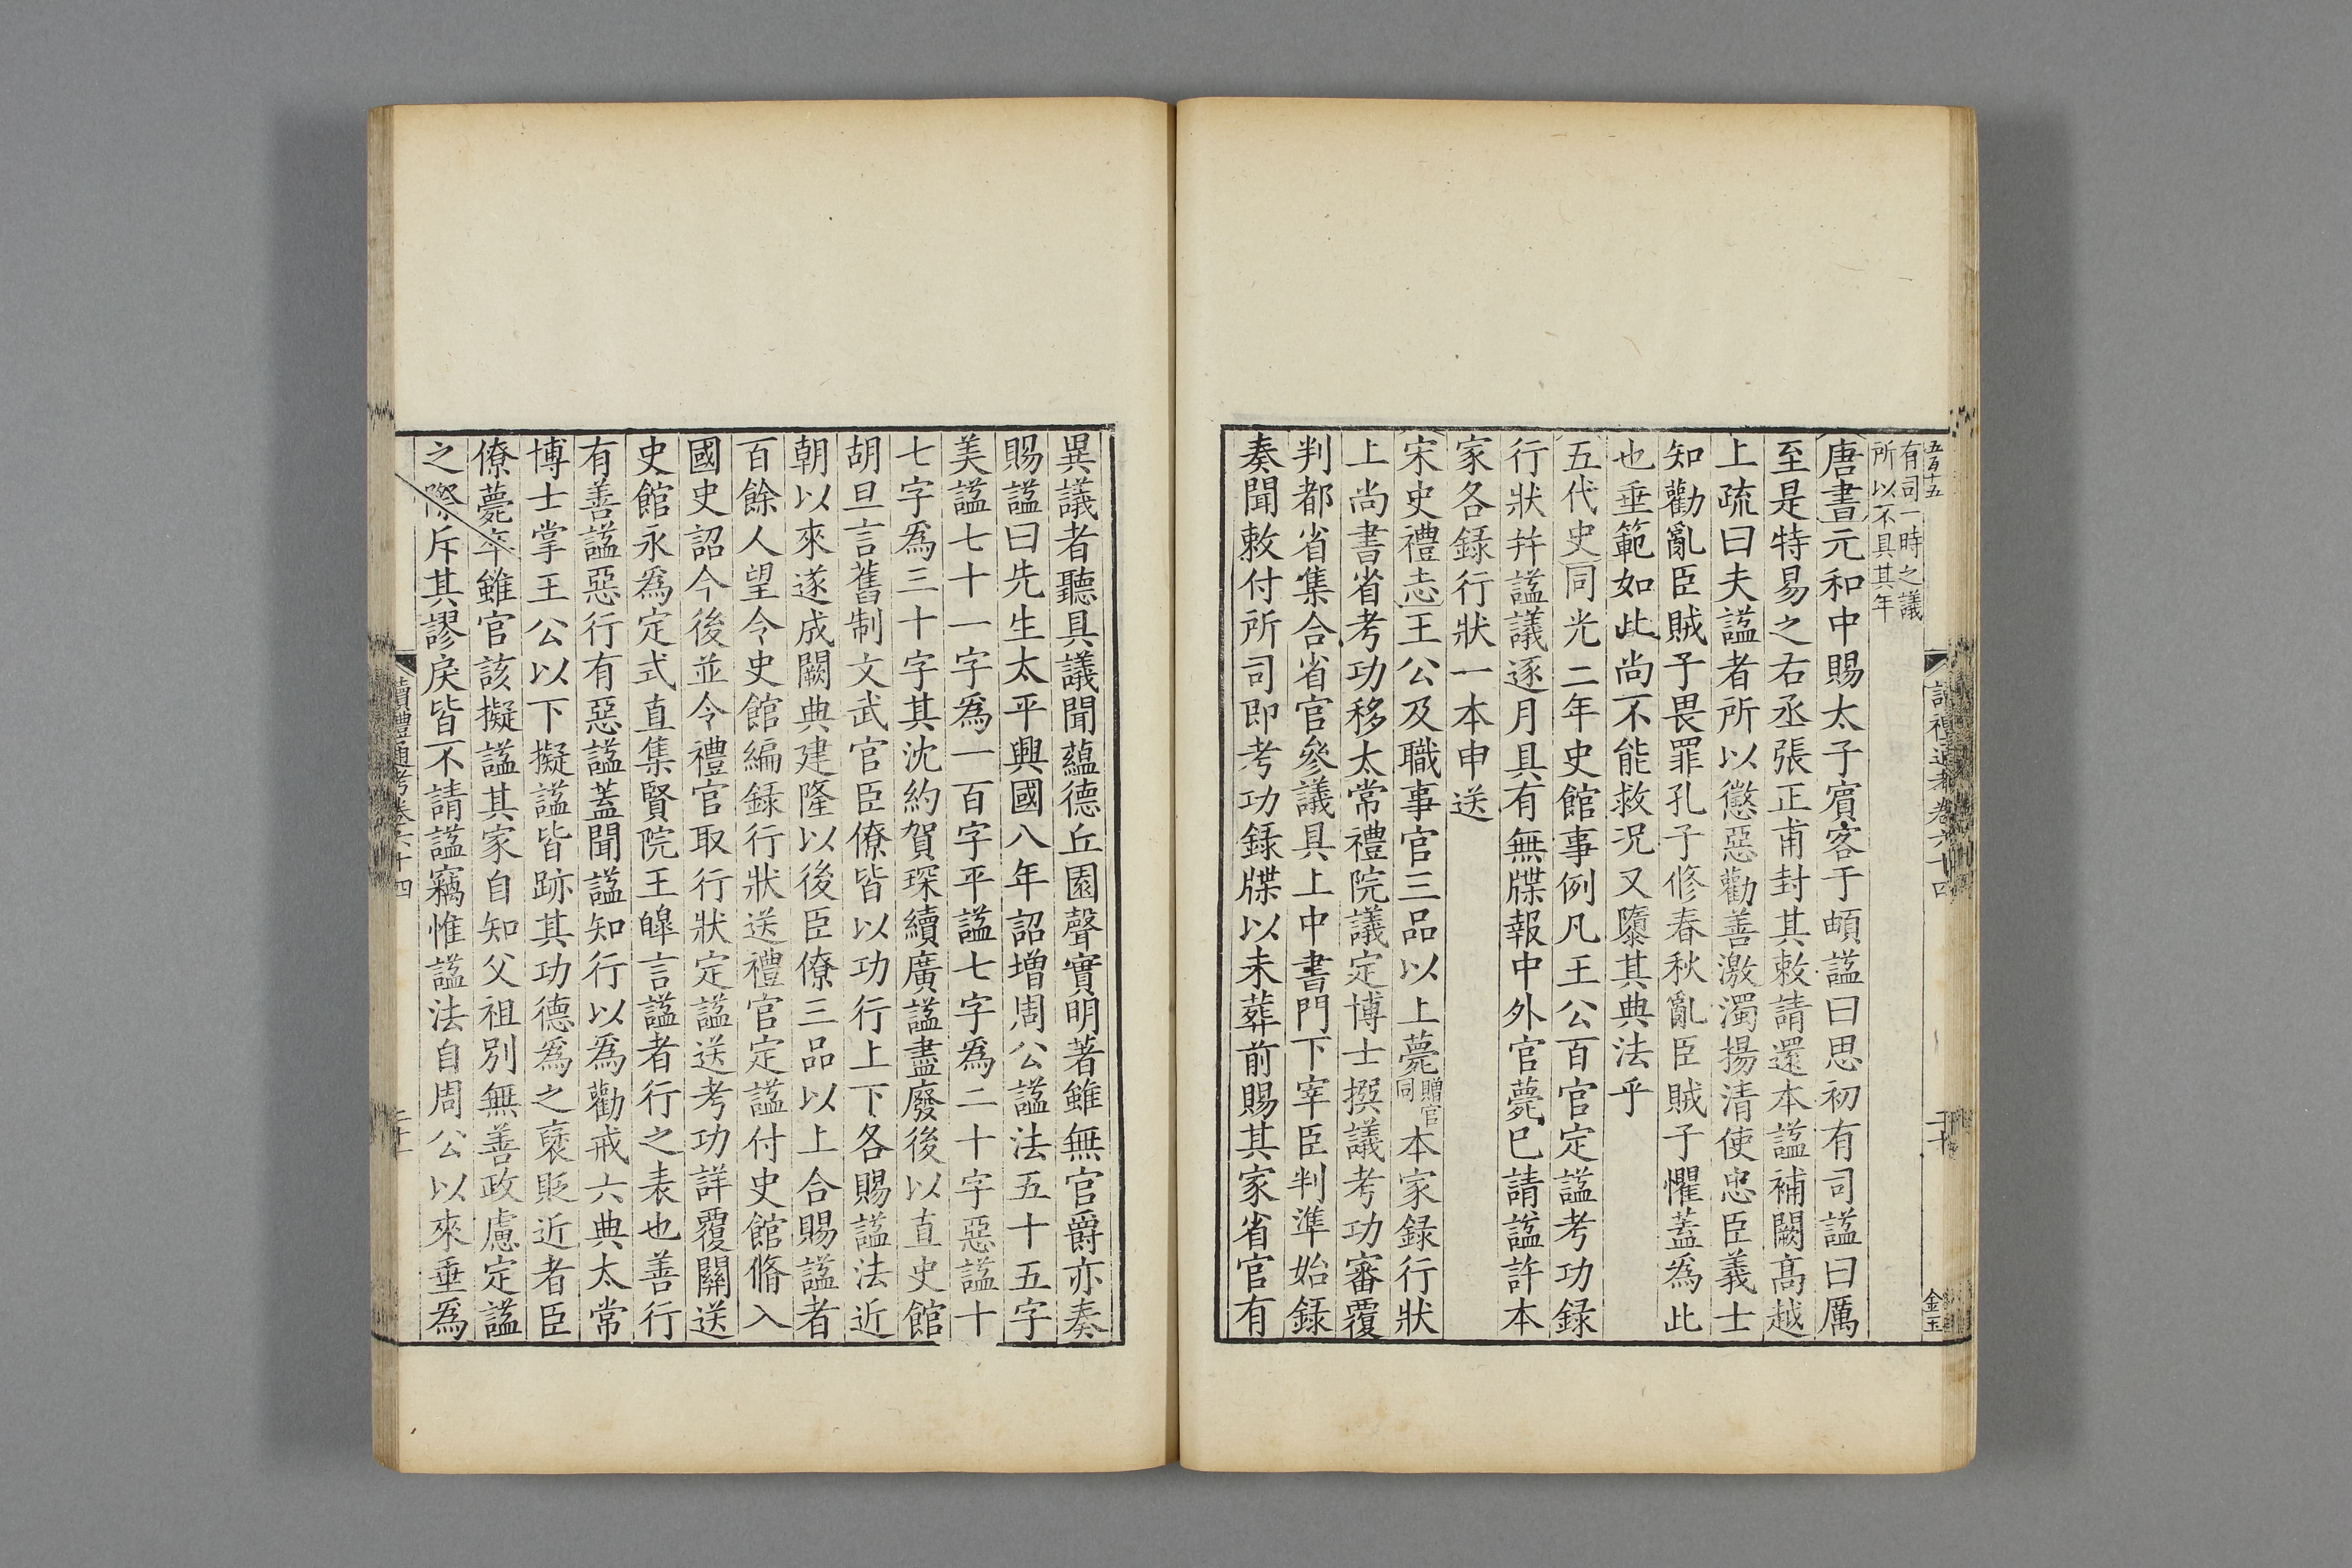 五百十五
讀禮通考卷六十四
二十
金玉
有司一時之議
所以不具其年
唐書元和中賜太子賓客于頔諡曰思初有司諡曰厲
至是特易之右丞張正甫封其敕請還本諡補闕高越
上疏曰夫諡者所以懲惡勸善激濁揚清使忠臣義士
知勸亂臣賊子畏罪孔子修春秋亂臣賊子懼蓋為此
也垂範如此尚不能救況又隳其典法乎
五代史同光二年史館事例凡王公百官定諡考功錄
行狀并諡議逐月具有無牒報中外官薨已請諡許本
家各錄行狀一本申送
宋史禮志王公及職事官三品以上薨贈官同本家錄行狀
上尚書省考功移太常禮院議定博士撰議考功審覆
判都省集合省官參議具上中書門下宰臣判準始錄
奏聞敕付所司即考功錄牒以未葬前賜其家省官有
異議者聽具議聞蘊德丘園聲實明著雖無官爵亦奏
賜諡曰先生太平興國八年詔增周公諡法五十五字
美諡七十一字為一百字平諡七字為二十字惡諡十
七字為三十字其沈約賀琛續廣諡盡廢後以直史館
胡旦言舊制文武官臣僚皆以功行上下各賜諡法近
朝以來遂成闕典建隆以後臣僚三品以上合賜諡者
百餘人望令史館編錄行狀送禮官定諡付史館脩入
國史詔今後並令禮官取行狀定諡送考功詳覆關送
史館永為定式直集賢院王皡言諡者行之表也善行
有善諡惡行有惡諡蓋聞諡知行以為勸戒六典太常
博士掌王公以下擬諡皆跡其功德為之襃貶近者臣
僚薨卒雖官該擬諡其家自知父祖別無善政慮定諡
之際斥其謬戾皆不請諡竊惟諡法自周公以來垂為
讀禮通考卷六十四